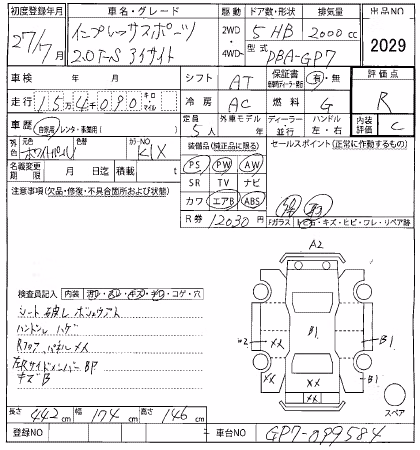 初度登録年月
27/7月
車名・グレード
インプレッサスポーツ
2.0i-S アイサイト
駆動
2WD
4WD
ドア数・形状
5 HB
排気量
2000 cc
型式
DBA-GP7
出品NO
2029
車検 年 月
シフト AT
保証書
有・無
評価点
R
走行 15万4千090 キロ マイル
冷房 AC
燃料 G
車歴 自家用 レンタ・事業用( )
定員 5人
外車モデル 年
ディーラー 並行
ハンドル 左・右
内装評価 C
外色 元色 ホワイトパール 色替
カラーNO K1X
名義変更期限 月 日迄 積載 t
装備品(純正品に限る)
PS PW AW
SR TV ナビ
カワ エアB ABS
R券 12030円
セールスポイント(正常に作動するもの)
注意事項(欠品・修復・不具合箇所および状態)
Fガラス トビ石・キズ・ヒビ・ワレ・リペア跡
A2
検査員記入 内装 コゲ・穴
シート破レ
ハンドル ハゲ
Rフロアパネル XX
左Rサイドメンバー BP
キズB
B1
XX
XX
XX
XX
B1
スペア
長さ 442 cm 幅 174 cm 高さ 146 cm
登録NO
車台NO GP7-099584